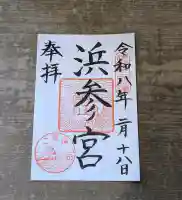 令和八年二月十八日
浜参宮
奉拝